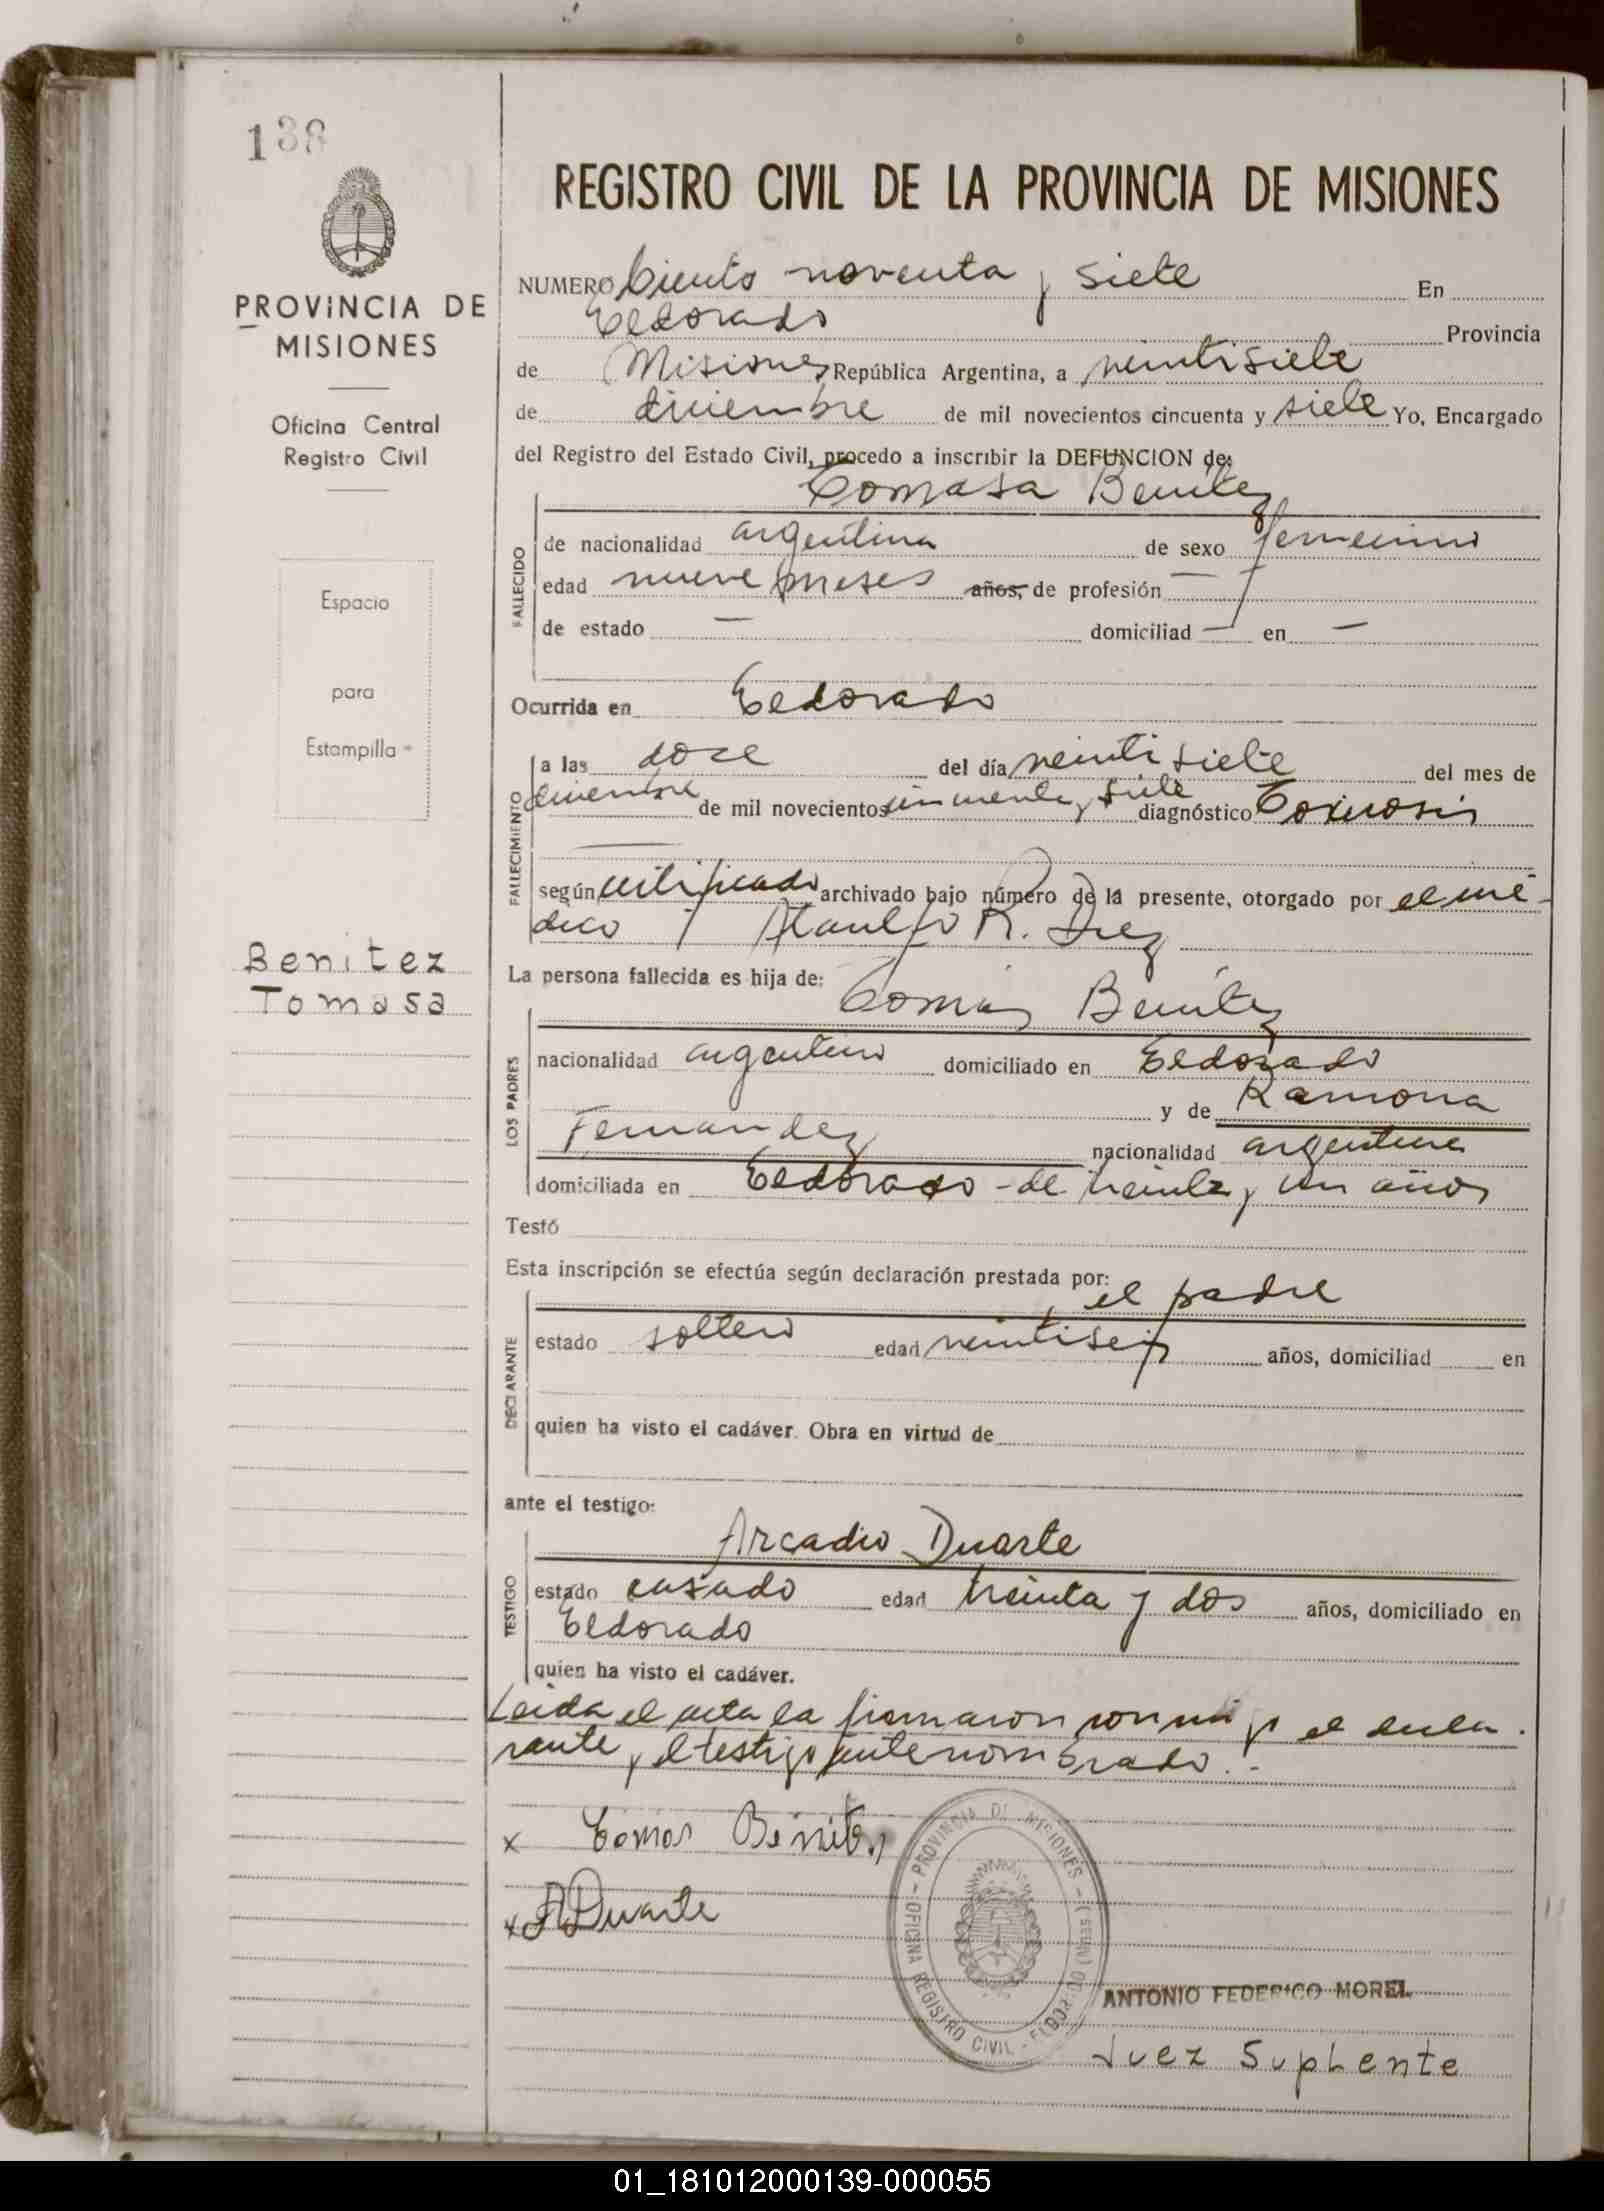 138
PROVINCIA DE
MISIONES
Oficina Central
Registro Civil
Espacio
para
Estampilla
Benitez
Tomasa
REGISTRO CIVIL DE LA PROVINCIA DE MISIONES
NUMERO Ciento noventa y siete En
Eldorado Provincia
de Misiones República Argentina, a veintisiete
de diciembre de mil novecientos cincuenta y siete Yo, Encargado
del Registro del Estado Civil, procedo a inscribir la DEFUNCION de:
Tomasa Benítez
FALLECIDO
de nacionalidad argentina de sexo femenino
edad nueve meses años, de profesión —
de estado — domiciliad — en —
Ocurrida en Eldorado
FALLECIMIENTO
a las doce del día veintisiete del mes de
diciembre de mil novecientos cincuenta y siete diagnóstico Toxicosis
según certificado archivado bajo número de la presente, otorgado por el mé-
dico Ataulfo R. Diez
La persona fallecida es hija de:
Tomás Benítez
LOS PADRES
nacionalidad argentino domiciliado en Eldorado
y de Ramona
Fernandez nacionalidad argentina
domiciliada en Eldorado - de treinta y un años
Testó
Esta inscripción se efectúa según declaración prestada por:
el padre
DECLARANTE
estado soltero edad veintiseis años, domiciliad en
quien ha visto el cadáver. Obra en virtud de
ante el testigo:
Arcadio Duarte
TESTIGO
estado casado edad treinta y dos años, domiciliado en
Eldorado
quien ha visto el cadáver.
Leida el acta la firmaron conmigo el decla-
rante y el testigo antenombrado.-
x Tomas Benitez
x A Duarte
PROVINCIA DE MISIONES - OFICINA REGISTRO CIVIL - ELDORADO
ANTONIO FEDERICO MOREL
Juez Suplente
01_181012000139-000055